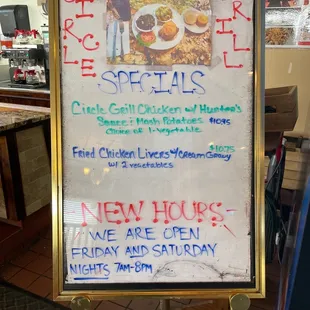 CIRCLE
GRILL
SPECIALS
Circle Grill Chicken w/ Hunter's
Sauce & Mash Potatoes $10.95
choice of 1-vegetable
Fried Chicken Livers w/ Cream Gravy
w/ 2 vegetables $10.75
NEW HOURS-
WE ARE OPEN
FRIDAY AND SATURDAY
NIGHTS 7AM-8PM